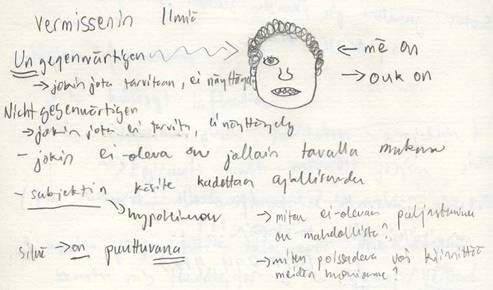 Vermissenin Ilmiö
Ungegenwärtigen
← mē on
→ jokin jota tarvitaan, ei näyttäydy
→ ouk on
Nicht gegenwärtigen
→ jokin jota ei tarvita, ei näyttäydy
- jokin ei-oleva on jollain tavalla mukana
- subjektin käsite kadottaa ajallisuuden
hypokeimenon
→ miten ei-olevan paljastuminen
on mahdollista?
silmä → on puuttuvana
→ miten poissaoleva voi kiinnittää
meidän huomiomme?